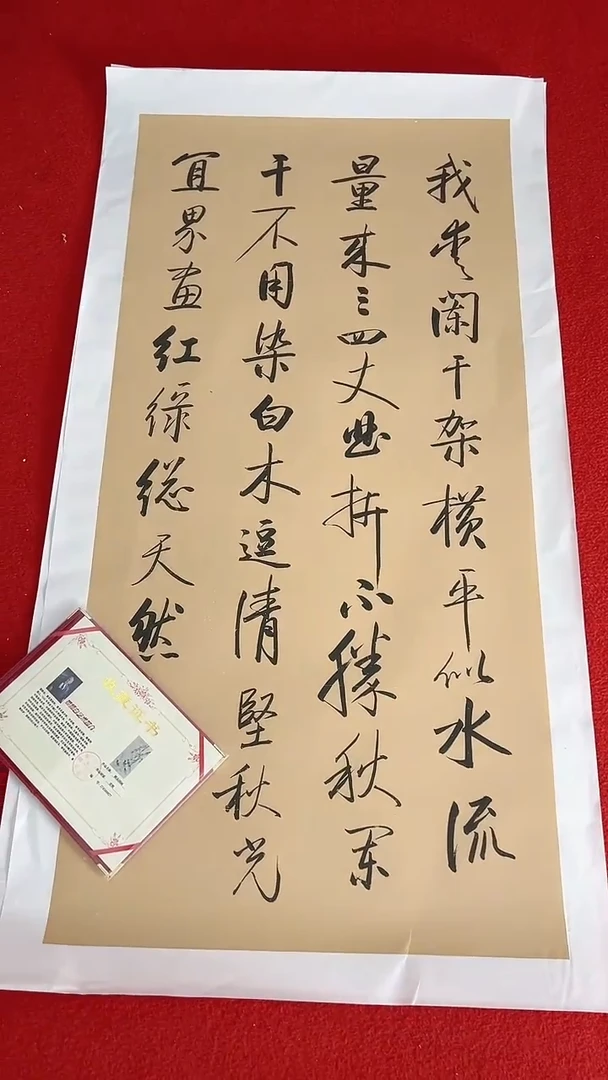 我爱阑干架横平似水流
量来三四丈曲折不勝秋阑
干不用染白木逗清堅秋光
宜界画红绿総天然
收藏证书